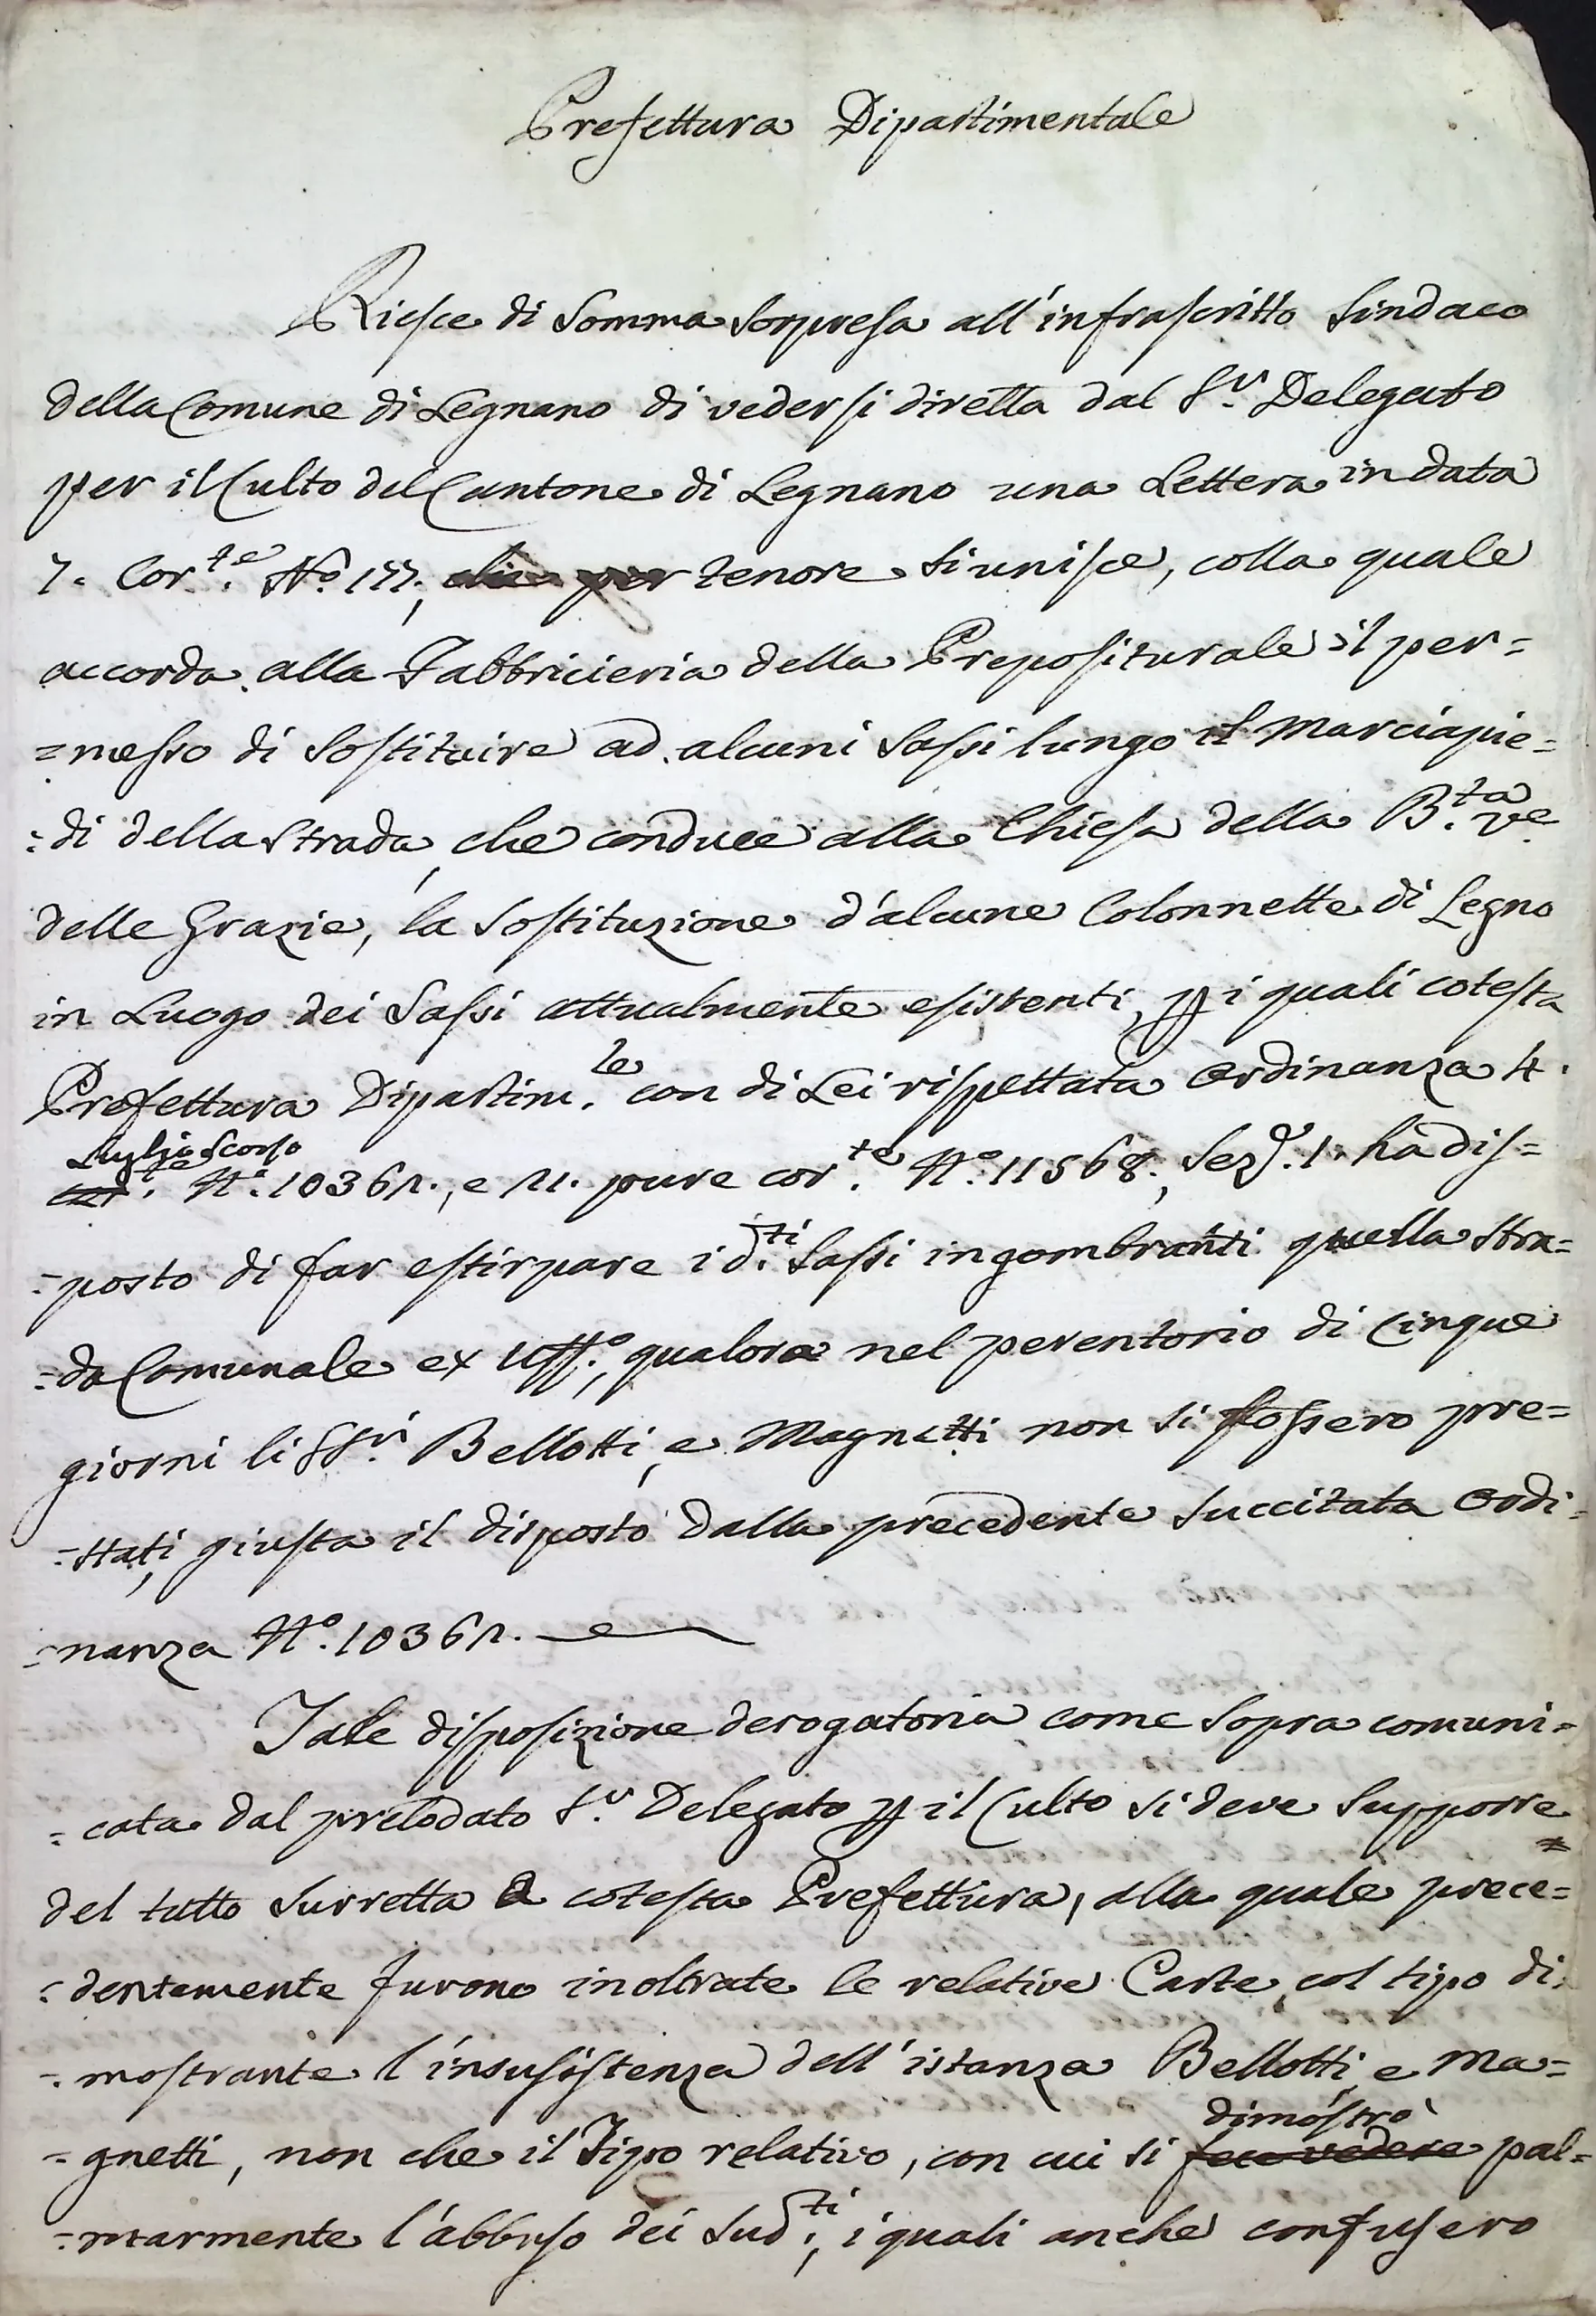 Prefettura Dipartimentale
Riesce di Somma Sorpresa all'infrascritto Sindaco
della Comune di Legnano di vedersi diretta dal S.r Delegato
per il Culto del Cantone di Legnano una Lettera in data
7. Cor.te N.o 177, tenore si unisce, colla quale
accorda alla Fabbricieria della Prepositurale il per=
=messo di Sostituire ad alcuni Sassi lungo il Marciapie=
=di della Strada, che conduce alla Chiesa della B.ta Ve.
delle Grazie, la Sostituzione d'alcune Colonnette di Legno
in Luogo dei Sassi attualmente esistenti, p i quali cotesta
Prefettura Dipartim.le con di Lei rispettata Ordinanza 4.
Luglio Scorso
N.o 10362., e 21. pure cor.te N.o 11568., Sez. 1. hà dis=
=posto di far estirpare i d.ti Sassi ingombranti quella Stra=
=da Comunale ex Uff.o, qualora nel perentorio di Cinque
giorni li SS.ri Bellotti, e Magnetti non si fossero pre=
=stati, giusta il disposto dalla precedente Succitata Ordi=
=nanza N.o 10362.
Tale disposizione derogatoria come Sopra comuni=
=cata dal prelodato S.r Delegato p il Culto si deve Supporre
del tutto Surretta a cotesta Prefettura, alla quale prece=
=dentemente furono inoltrate le relative Carte, col tipo di=
=mostrante l'insusistenza dell'istanza Bellotti, e Ma=
dimostrò
=gnetti, non che il Tipo relativo, con cui si fece vedere pal=
=marmente l'abbuso dei Sud.ti, i quali anche confusero